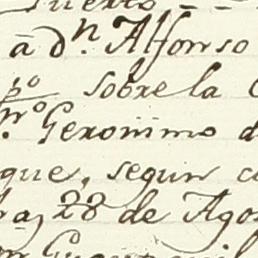 Puerto
a dn. Alfonso
po sobre la
no Geronimo d
que, segun c
ha, 28 de Ago